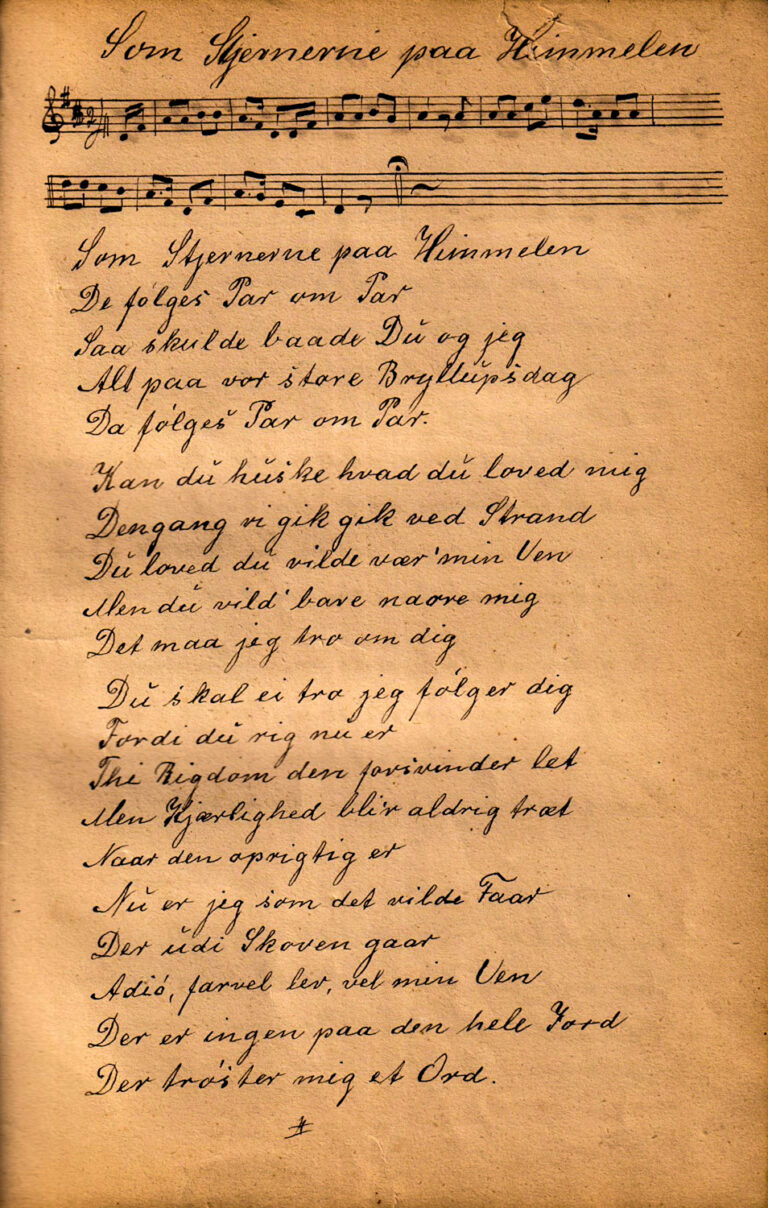 Som Stjernerne paa Himmelen
Som Stjernerne paa Himmelen
De følges Par om Par
Saa skulde baade Du og jeg
Alt paa vor store Bryllupsdag
Da følges Par om Par.
Kan du huske hvad du loved mig
Dengang vi gik gik ved Strand
Du loved du vilde vær' min Ven
Men du vild' bare narre mig
Det maa jeg tro om dig
Du skal ei tro jeg følger dig
Fordi du rig nu er
Thi Rigdom den forsvinder let
Men Kjærlighed bli'r aldrig træt
Naar den oprigtig er
Nu er jeg som det vilde Faar
Der udi Skoven gaar
Adió, farvel lev, vel min Ven
Der er ingen paa den hele Jord
Der trøster mig et Ord.